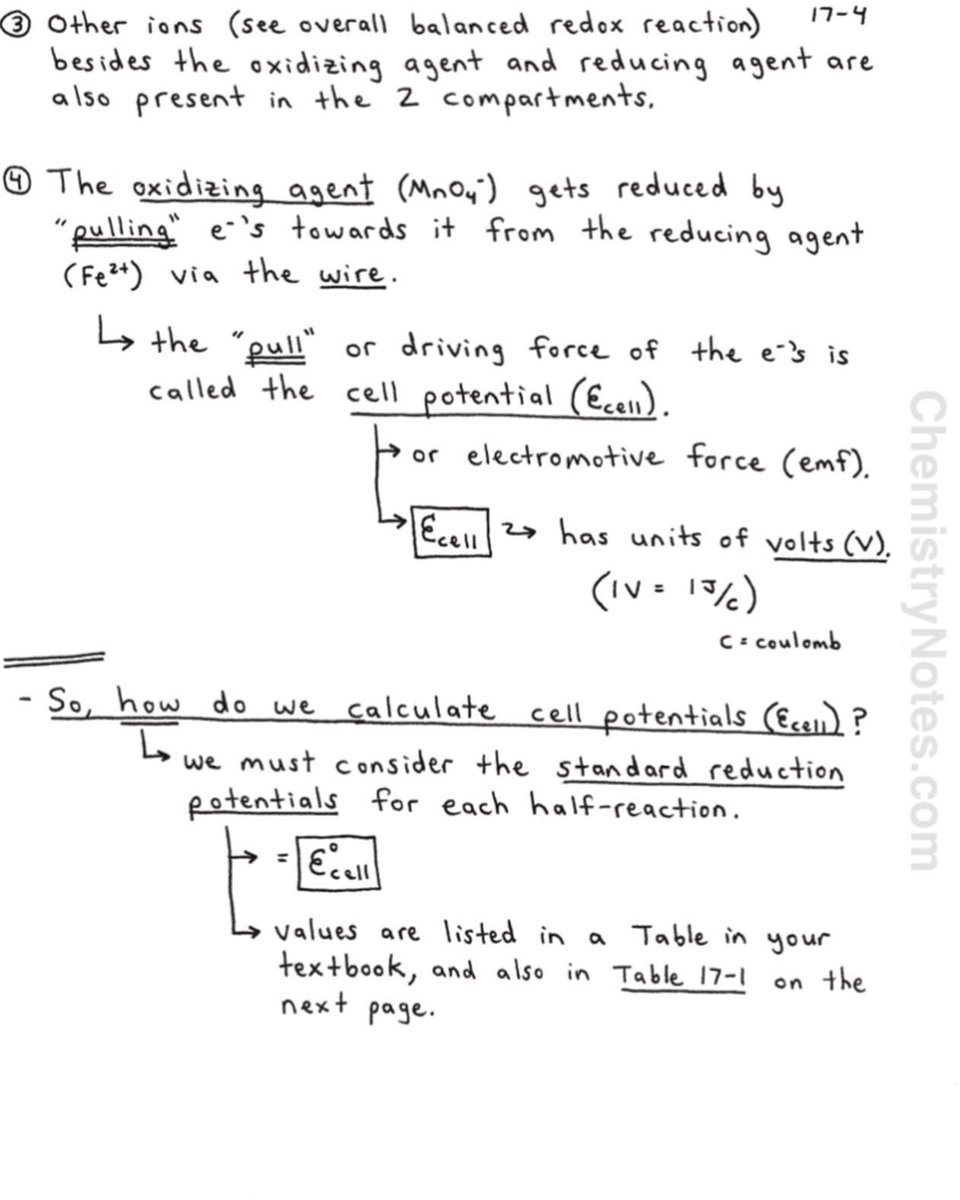 17-4
③ Other ions (see overall balanced redox reaction)
besides the oxidizing agent and reducing agent are
also present in the 2 compartments.
④ The oxidizing agent (MnO₄⁻) gets reduced by
"pulling" e⁻'s towards it from the reducing agent
(Fe²⁺) via the wire.
↳ the "pull" or driving force of the e⁻'s is
called the cell potential (Ɛcell).
→ or electromotive force (emf).
→ Ɛcell → has units of volts (V).
(1V = 1 J/C)
C = coulomb
- So, how do we calculate cell potentials (Ɛcell)?
↳ we must consider the standard reduction
potentials for each half-reaction.
→ = Ɛ°cell
↳ values are listed in a Table in your
textbook, and also in Table 17-1 on the
next page.
ChemistryNotes.com